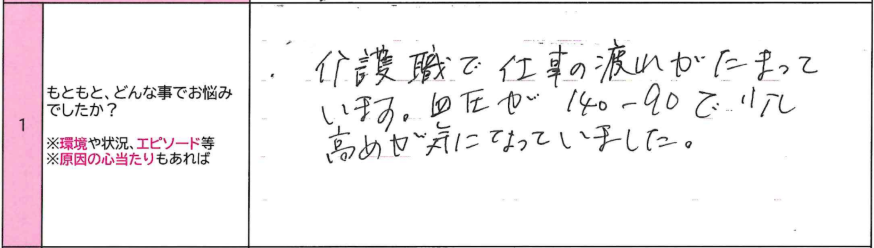 1
もともと、どんな事でお悩み
でしたか？
※環境や状況、エピソード等
※原因の心当たりもあれば
・介護職で仕事の疲れがたまって
います。血圧が140-90で少し
高めが気になっていました。